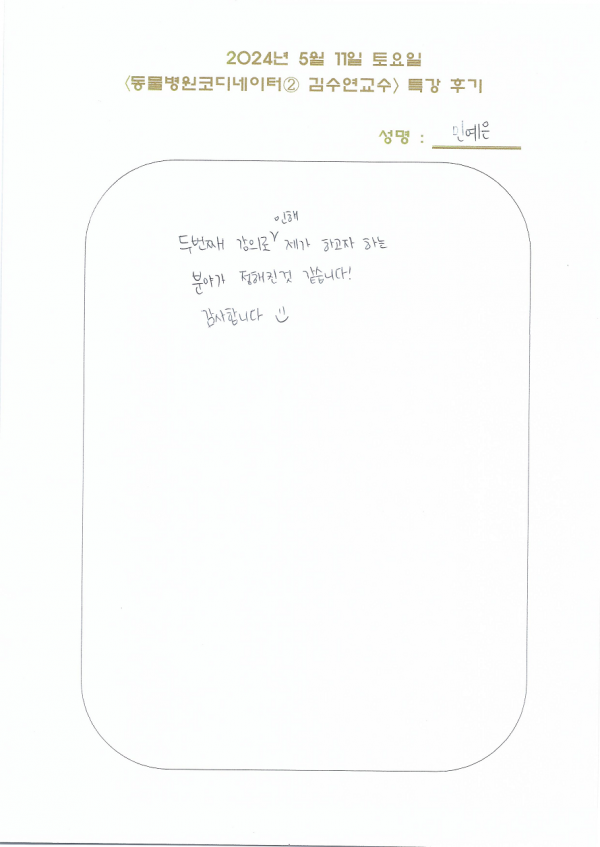 2024년 5월 11일 토요일
<동물병원코디네이터② 김수연교수> 특강 후기
성명 : 민예은
인해
두번째 강의로 ∨ 제가 하고자 하는
분야가 정해진것 같습니다!
감사합니다 ☺